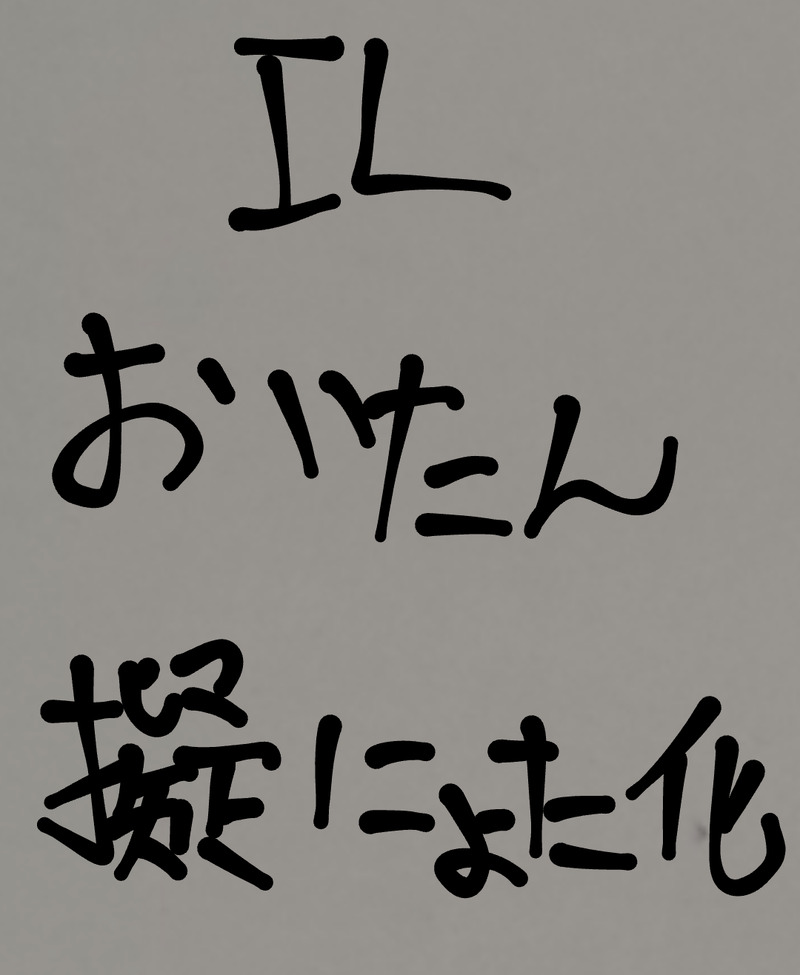 IL
おいたん
擬にょた化